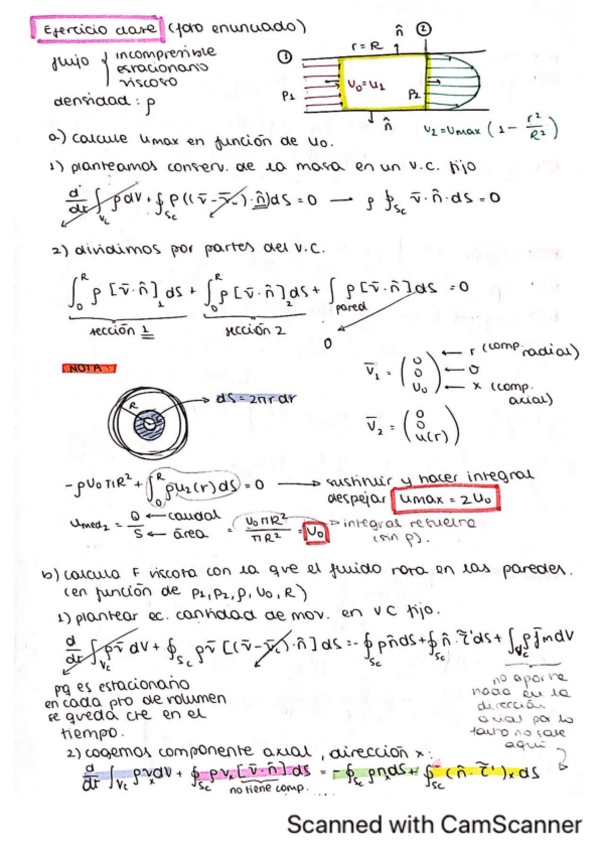 Ejercicio clase (foto enunciado)
flujo { incompresible
estacionario
viscoso
densidad : ρ
① r = R n̂ ②
P₁ U₀ = U₁ P₂
n̂
U₂ = Umax (1 - r²/R²)
a) calcule Umax en función de U₀.
1) planteamos conserv. de la masa en un v.c. fijo
d/dt ∫Vc ρdV + ∮Sc ρ((v̄ - v̄c)·n̂)dS = 0 → ρ ∮Sc v̄·n̂·dS = 0
2) dividimos por partes del v.c.
∫₀ᴿ ρ [v̄·n̂]₁ dS + ∫₀ᴿ ρ [v̄·n̂]₂ dS + ∫pared ρ[v̄·n̂] dS = 0
sección 1 sección 2 0
NOTA
R r → dS = 2πr dr
v̄₁ = (0 0 U₀) ← r (comp. radial) ← θ ← x (comp. axial)
v̄₂ = (0 0 u(r))
-ρU₀πR² + ∫₀ᴿ ρU₂(r)dS = 0 → sustituir y hacer integral
despejar Umax = 2U₀
Umed₂ = Q/S ← caudal ← área = U₀πR²/πR² = U₀ → integral resuelta
(sin ρ).
b) calcula F viscosa con la que el fluido roza en las paredes.
(en función de P₁, P₂, ρ, U₀, R)
1) plantear ec. cantidad de mov. en VC fijo.
d/dt ∫Vc ρv̄ dV + ∮Sc ρv̄ [(v̄-v̄c)·n̂] dS = -∮Sc pn̂dS + ∮Sc n̂·τ̃'dS + ∫Vc ρf̄m dV
pq es estacionario
en cada pto de volumen
se queda cte en el
tiempo.
no aporta
nada en la
dirección
axial por lo
tanto no sale
aquí
2) cogemos componente axial, dirección x:
d/dt ∫Vc ρvx dV + ∮Sc ρvx [v̄·n̂] dS = -∮Sc ρnx dS + ∮Sc (n̂·τ̃')x dS
no tiene comp.
Scanned with CamScanner